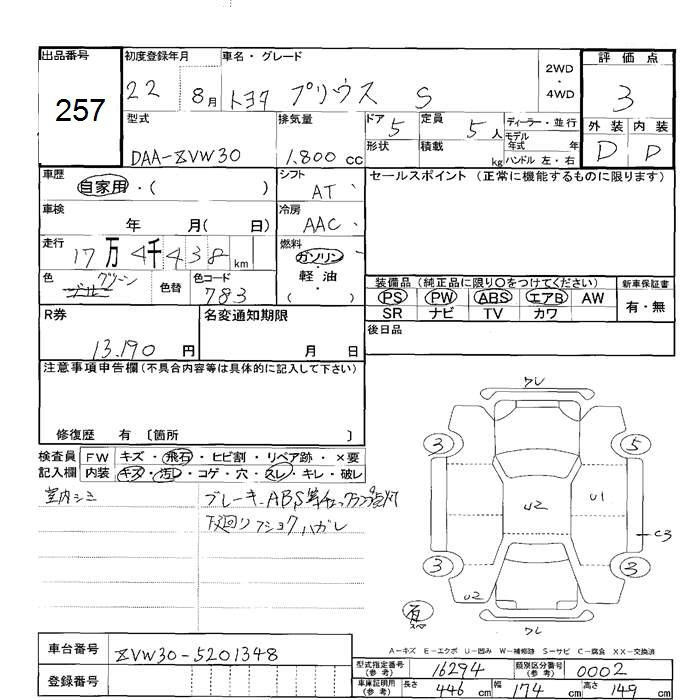 出品番号 初度登録年月 車名・グレード 評価点
257 22 8月 トヨタ プリウス S 2WD・4WD 3
型式 排気量 ドア 5 定員 5人 ディーラー・並行 外装 内装
DAA-ZVW30 1,800cc 形状 積載 kg モデル年式 年 ハンドル 左・右 D D
車歴 自家用・( ) シフト AT セールスポイント (正常に機能するものに限ります)
車検 年 月( 日) 冷房 AAC
走行 17万 4千 438 km 燃料 ガソリン・軽油 ( )
色 グリーン 色替 色コード 783
装備品 (純正品に限り〇をつけてください) 新車保証書
PS PW ABS エアB AW 有・無
SR ナビ TV カワ
R券 13,190円 名変通知期限 月 日 後日品
注意事項申告欄 (不具合内容等は具体的に記入して下さい)
修復歴 有 〔箇所 〕
検査員 FW キズ・飛石・ヒビ割・リペア跡・×要
記入欄 内装 キズ・汚レ・コゲ・穴・スレ・キレ・破レ
室内シミ ブレーキ、ABS等チェックランプ点灯
下廻りフショクハガレ
ワレ
3 5
U2 U1
C3
3 3
U2
有
スペ
ワレ
A-キズ E-エクボ U-凹み W-補修跡 S-サビ C-腐食 XX-交換済
車台番号 ZVW30-5201348 型式指定番号 (参考) 16294 類別区分番号 (参考) 0002
登録番号 車庫証明用 (参考) 長さ 446 cm 幅 174 cm 高さ 149 cm